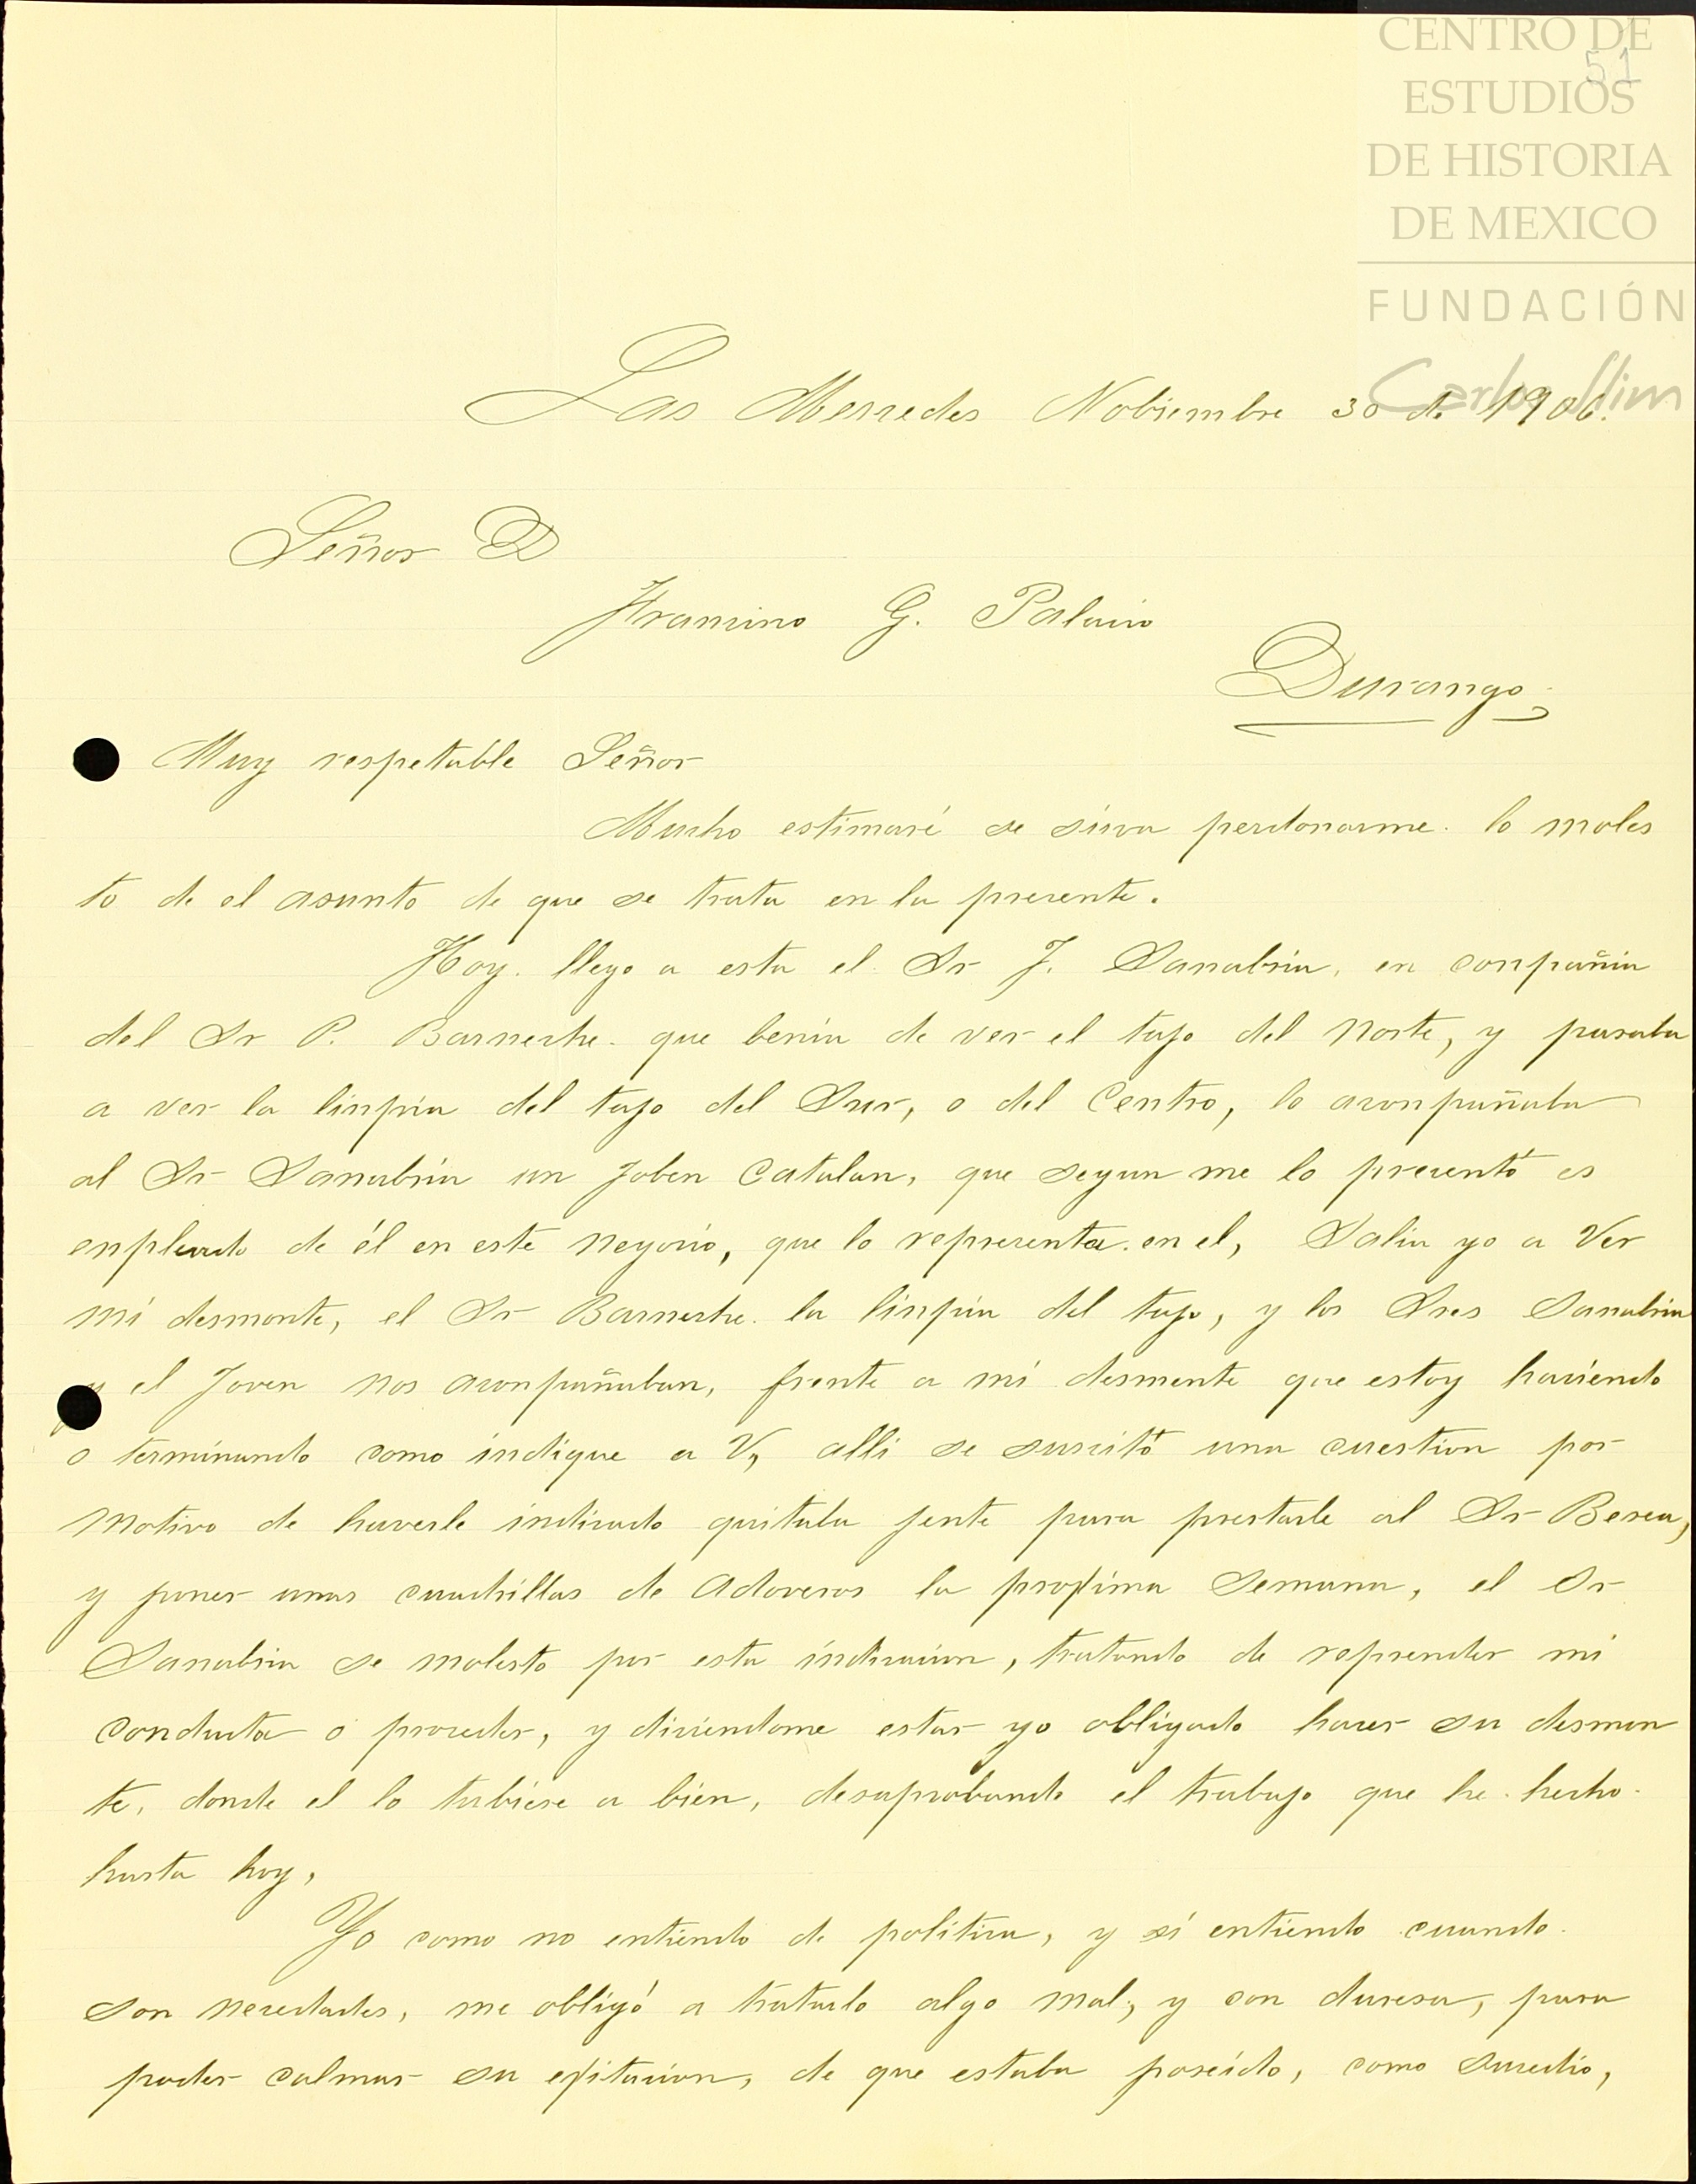 CENTRO DE
ESTUDIOS
DE HISTORIA
DE MEXICO
FUNDACIÓN
Carlos Slim
51
Las Mercedes Nobiembre 30 de 1906.
Señor D
Francisco G. Palacio
Durango.
Muy respetable Señor
Mucho estimaré se sirva perdonarme lo moles
to de el asunto de que se trata en la presente.
Hoy llego a esta el Sr J. Sanabria, en conpañia
del Sr P. Barneche que benia de ver el tajo del Norte, y pasaba
a ver la linpia del tajo del Sur, o del Centro, lo aconpañaba
al Sr Sanabria un Joben Catalan, que segun me lo presentó es
enpleado de él en este negocio, que lo representa en el, Salia yo a Ver
mi desmonte, el Sr Barneche la linpia del tajo, y los Sres Sanabria
y el Joven nos aconpañaban, frente a mi desmonte que estoy haciendo
o terminando como indique a V, alli se suscitó una cuestion por
motivo de haverle indicado quitaba jente para prestarle al Sr Berea,
y poner unas cuadrillas de Adoveros la proxima Semana, el Sr
Sanabria se molesto por esta indicacion, tratando de reprender mi
conducta o proceder, y diciendome estar yo obligado hacer su desmon
te, donde el lo tubiese a bien, desaprobando el trabajo que he hecho
hasta hoy,
Yo como no entiendo de politica, y si entiendo cuando
son necedades, me obligó a tratarlo algo mal, y con duresa, para
poder calmar su exitacion, de que estaba poseido, como sucedio,